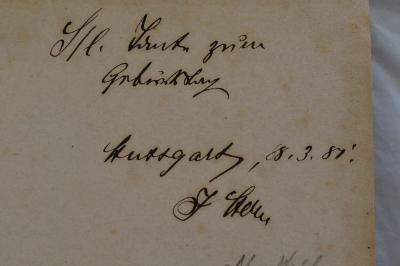 S/l. Tante zum
Geburtstag
Stuttgart, 8.3.81.
J Stern